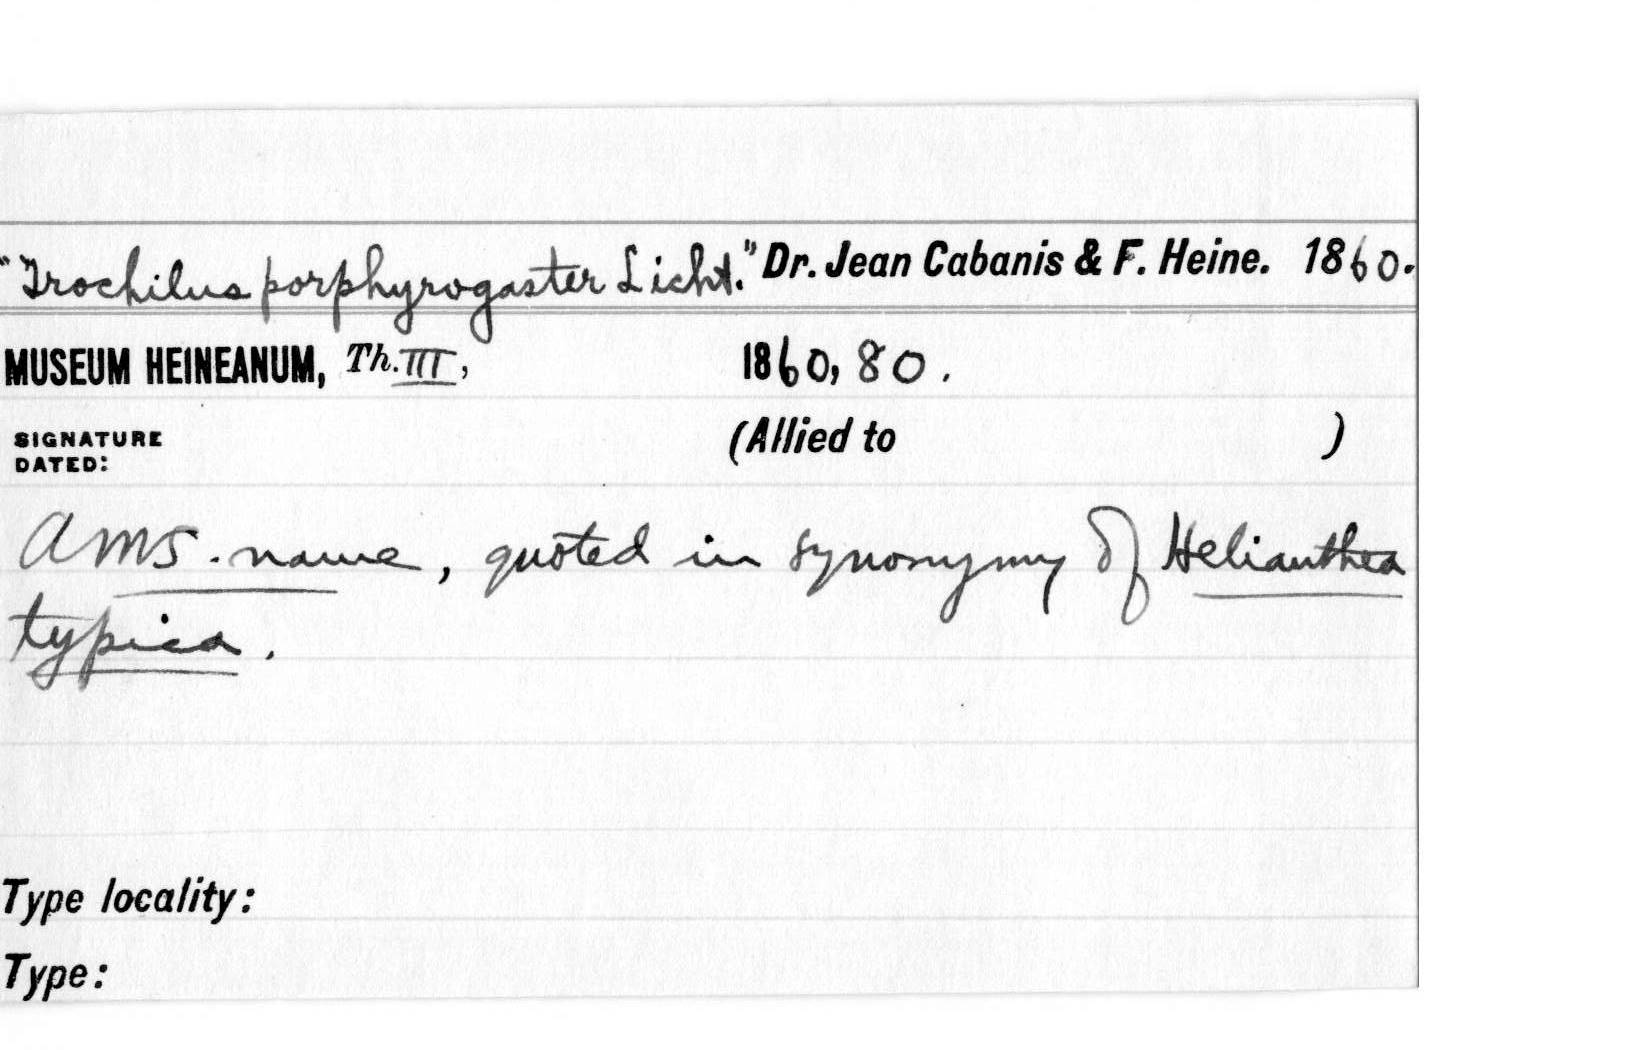 "Trochilus porphyrogaster Licht." Dr. Jean Cabanis & F. Heine. 1860.
MUSEUM HEINEANUM, Th. III, 1860, 80.
SIGNATURE DATED: (Allied to )
A MS. name, quoted in synonymy of Helianthea
typica.
Type locality:
Type: